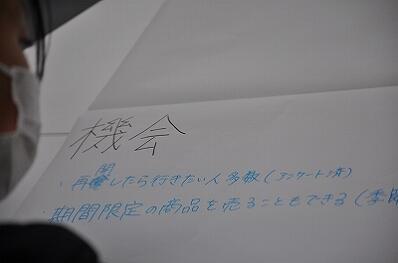 機会
・再開したら行きたい人多数(アンケート済)
・期間限定の商品を売ることもできる(季